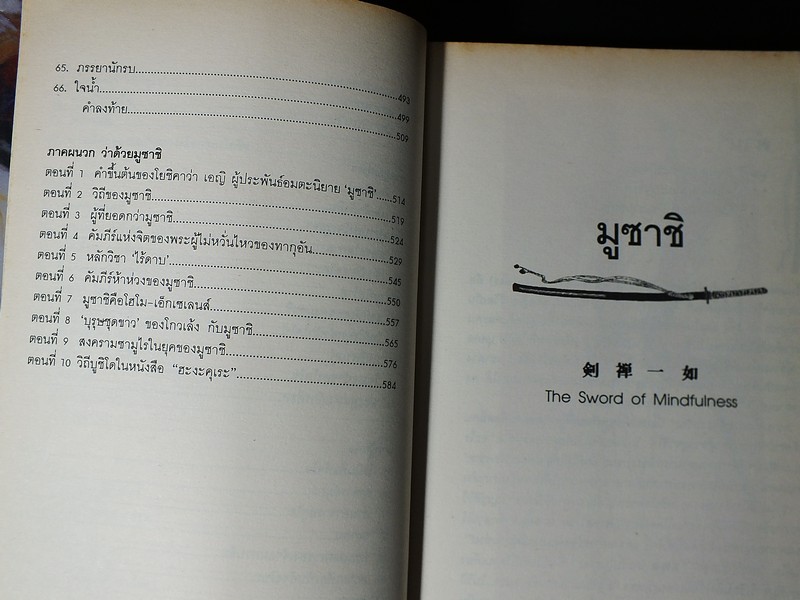 65. ภรรยานักรบ..........493
66. ใจน้ำ..........499
คำลงท้าย..........509
ภาคผนวก ว่าด้วยมูซาชิ
ตอนที่ 1 คำขึ้นต้นของโยชิคาว่า เอญิ ผู้ประพันธ์อมตะนิยาย 'มูซาชิ'......514
ตอนที่ 2 วิถีของมูซาชิ..........519
ตอนที่ 3 ผู้ที่ยอดกว่ามูซาชิ..........524
ตอนที่ 4 คัมภีร์แห่งจิตของพระผู้ไม่หวั่นไหวของทากุอัน..........529
ตอนที่ 5 หลักวิชา 'ไร้ดาบ'..........545
ตอนที่ 6 คัมภีร์ห้าห่วงของมูซาชิ..........550
ตอนที่ 7 มูซาชิคือโฮโม-เอ็กเซเลนส์..........557
ตอนที่ 8 'บุรุษชุดขาว' ของโกวเล้ง กับมูซาชิ..........565
ตอนที่ 9 สงครามซามูไรในยุคของมูซาชิ..........576
ตอนที่ 10 วิถีบูชิโดในหนังสือ "ฮะงะคุเระ"..........584
มูซาชิ
剣 禅 一 如
The Sword of Mindfulness